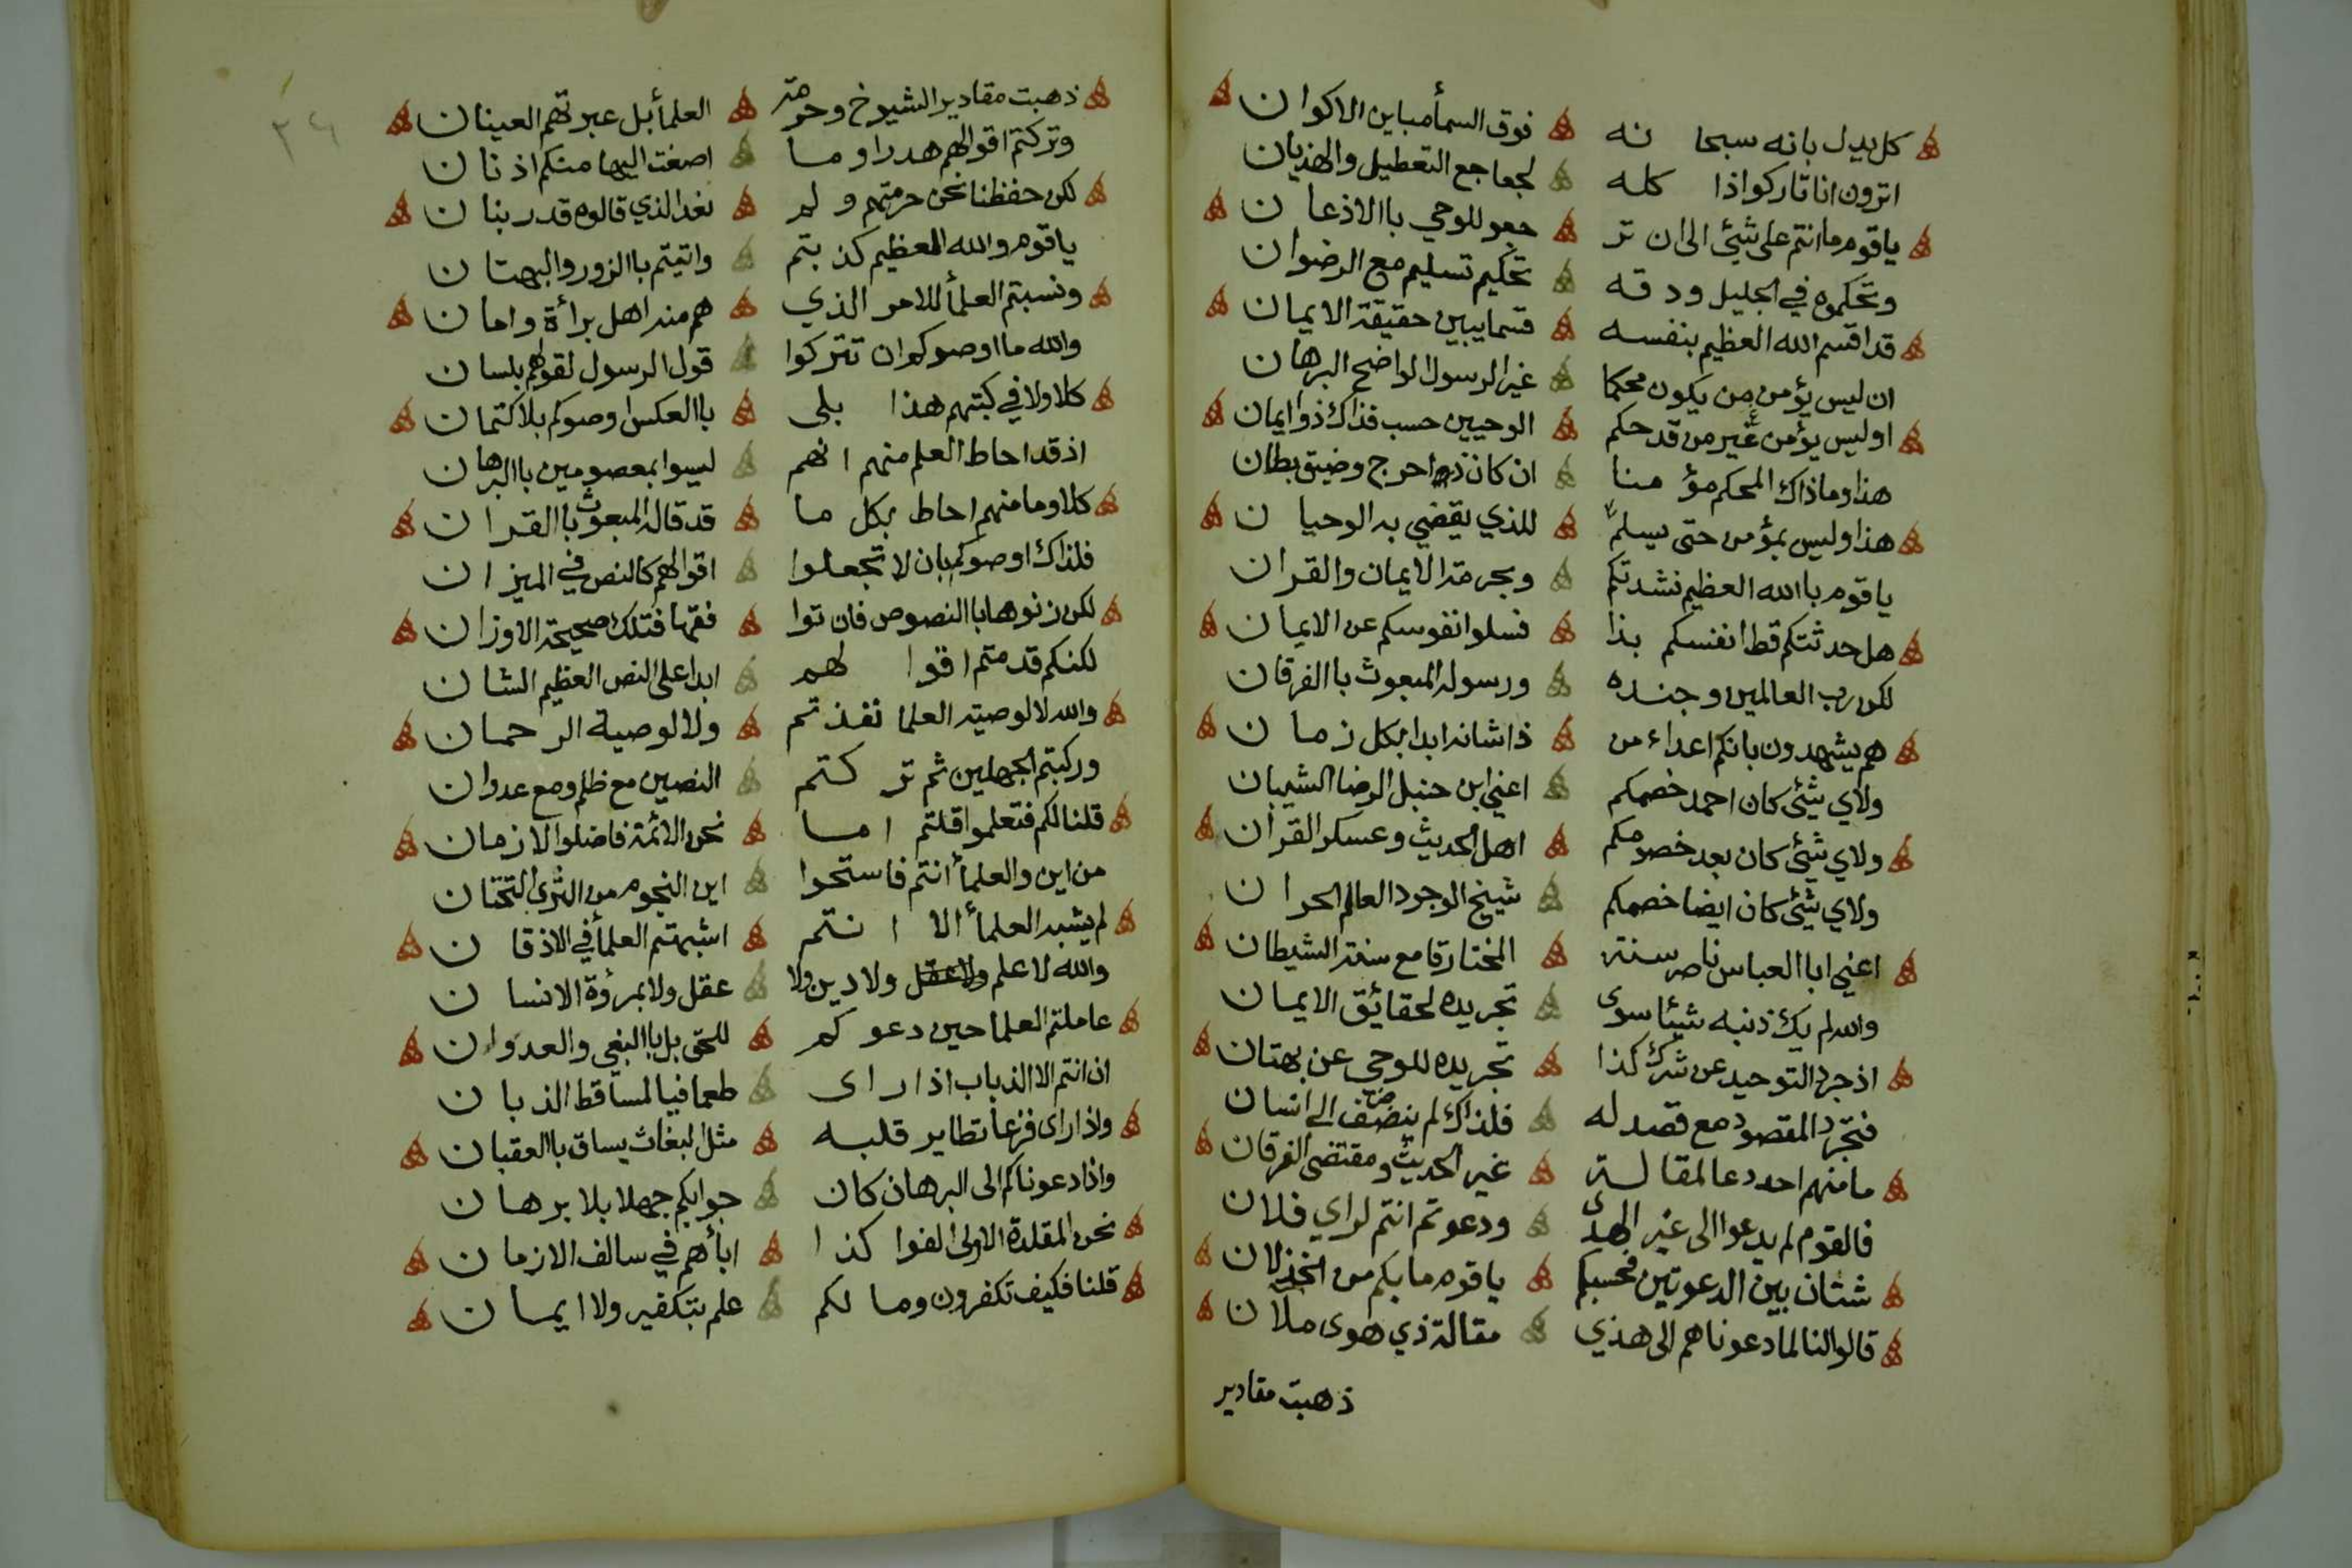 كل يدل بانه سبحا نه فوق السمأ مباين الاكوان
اترون انا تاركوا ذا كله لجعاجع التعطيل والهذيان
ياقوم ما انتم على شيئ الى ان تر جعو للوحي باالاذعان
وتحكموه في الجليل ودقه تحكيم تسليم مع الرضوان
قد اقسم الله العظيم بنفسه قسما يبين حقيقة الايمان
ان ليس يؤمن من يكون محكما غير الرسول الواضح البرهان
اوليس يؤمن غير من قد حكم الوحيين حسب فذاك ذوا ايمان
هذا وماذاك المحكم مؤ منا ان كان ذا حرج وضيق بطان
هذا وليس بمؤمن حتى يسلم للذي يقضي به الوحيا ن
ياقوم باالله العظيم نشدتكم وبحرمة الايمان والقران
هل حدثتكم قط انفسكم بذا فسلوا نفوسكم عن الايمان
لكن رب العالمين وجنده ورسوله المبعوث باالفرقان
هم يشهدون بانكم اعداء من ذا شانه ابدا بكل زمان
ولاي شيئ كان احمد خصمكم اعني ابن حنبل الرضا الشيبان
ولاي شيئ كان بعد خصومكم اهل الحديث وعسكر القران
ولاي شيئ كان ايضا خصمكم شيخ الوجود العالم الحران
اعني ابا العباس ناصر سنة المختار قامع سنة الشيطان
والله لم يك ذنبه شيئا سوى تجريده لحقايق الايمان
اذ جرد التوحيد عن شرك كذا تجريده للوحي عن بهتان
فتجرد المقصود مع قصد له فلذاك لم ينضف الى انسان
ما منهم احد دعا لمقالة غير الحديث ومقتضى الفرقان
فالقوم لم يدعوا الى غير الهدى ودعوتم انتم لراي فلان
شتان بين الدعوتين فحسبكم ياقوم مابكم من الخذلان
قالوا لنا لما دعوناهم الى هذي مقالة ذي هوى ملان
ذهبت مقادير
٣٤
ذهبت مقادير الشيوخ وحرمة العلمأ بل عبرتهم العينان
وتركتم اقوالهم هدرا وما اصغت اليها منكم اذنان
لكن حفظنا نحن حرمتهم ولم نعد الذي قالوه قدر بنان
ياقوم والله العظيم كذبتم واتيتم باالزور والبهتان
ونسبتم العلمأ للامر الذي هم منه اهل برأة وامان
والله ما اوصوكم ان تتركوا قول الرسول لقولهم بلسان
كلا ولا في كتبهم هذا بلى باالعكس اوصوكم بلا كتمان
اذ قد احاط العلم منهم انهم ليسوا بمعصومين باالبرهان
كلا وما منهم احاط بكل ما قد قاله المبعوث باالقران
فلذاك اوصوكم بان لا تجعلوا اقوالهم كالنص في الميزان
لكن زنوها باالنصوص فان توا فقها فتلك صحيحة الاوزان
لكنكم قدمتم اقوا لهم ابدا على النص العظيم الشان
والله لا لوصية العلما نفذتم ولا لوصية الرحمان
وركبتم الجهلين ثم تر كتم النصين مع ظلم ومع عدوان
قلنا لكم فتعلموا قلتم اما نحن الائمة فاضلوا الازمان
من اين والعلمأ انتم فاستحوا اين النجوم من الثرى التحتان
لم يشبه العلمأ الا انتم اشبهتم العلمأ في الاذقا ن
والله لا علم ولا عقل ولا دين ولا عقل ولا بمرؤة الانسا ن
عاملتم العلما حين دعوكم للحق بل باالبغي والعدوان
ان انتم الا الذباب اذا راى طعما فيا لمساقط الذبان
واذا راى فزعا تطاير قلبه مثل البغاث يساق باالعقبان
واذا دعوناكم الى البرهان كان جوابكم جهلا بلا برهان
نحن المقلدة الاولى الفوا كذا ابأهم في سالف الازمان
قلنا فكيف تكفرون وما لكم علم بتكفير ولا ايمان